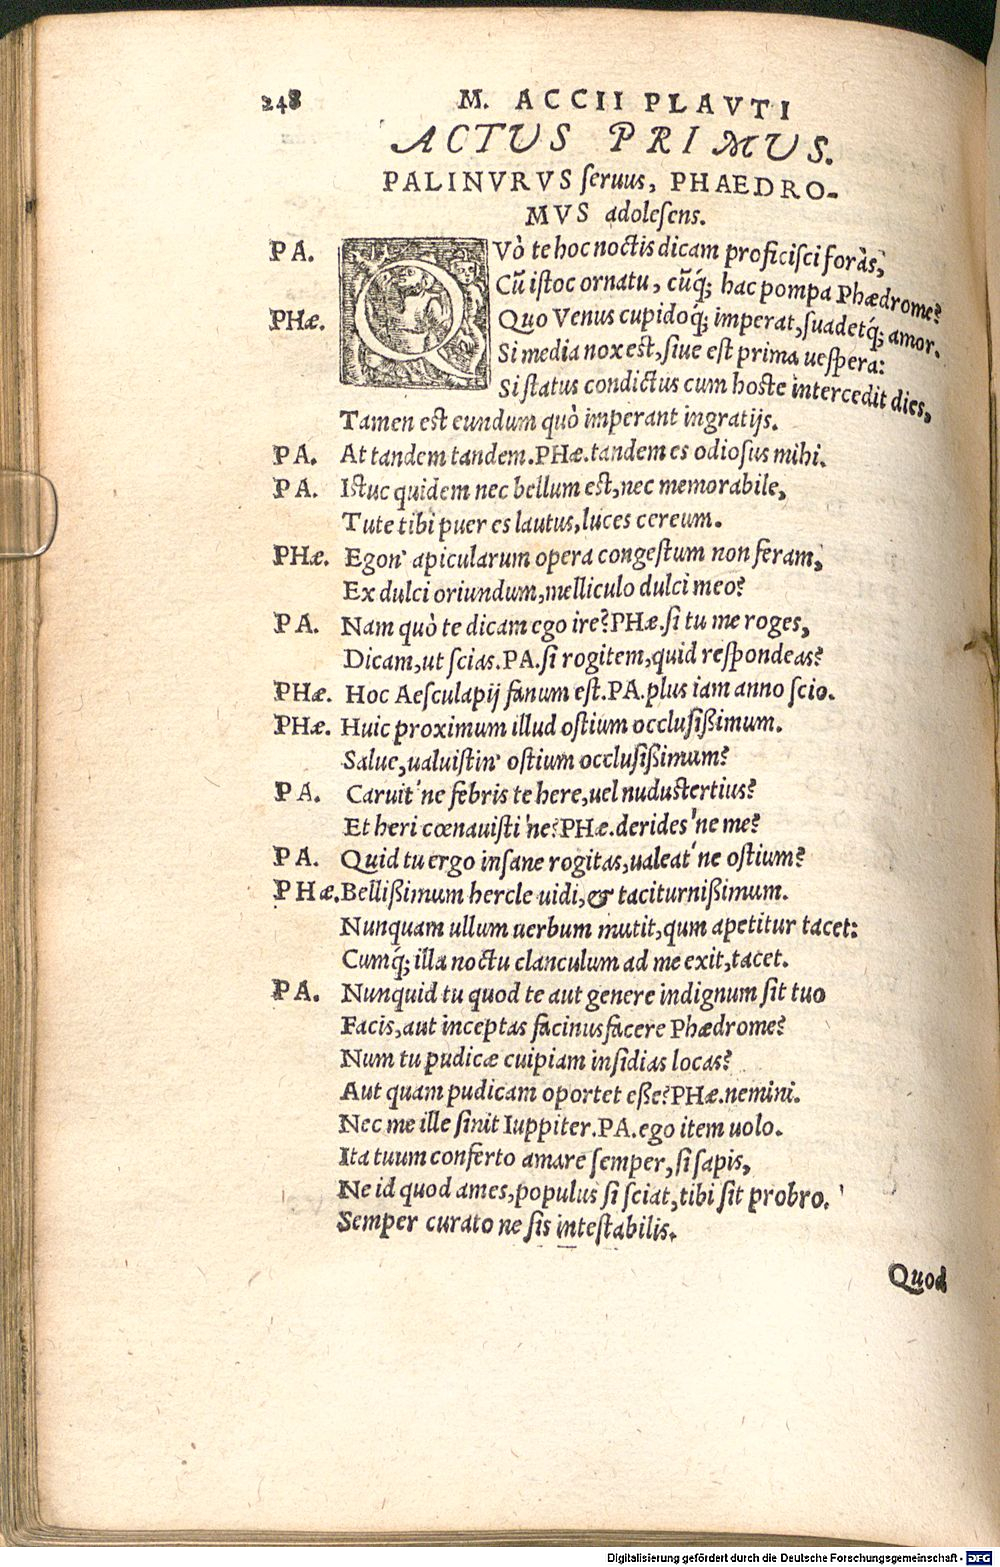 248
M. ACCII PLAVTI
ACTUS PRIMUS.
PALINVRVS ſeruus, PHAEDRO-
MVS adoleſens.
PA. QVò te hoc noctis dicam proficiſci foràs,
Cũ iſtoc ornatu, cũq́; hac pompa Phædrome?
PHæ. Quo Venus cupidoq́; imperat, ſuadetq́; amor.
Si media nox eſt, ſiue eſt prima ueſpera:
Si ſtatus condictus cum hoſte intercedit dies,
Tamen eſt eundum quò imperant ingratijs.
PA. At tandem tandem. PHæ. tandem es odioſus mihi.
PA. Iſtuc quidem nec bellum eſt, nec memorabile,
Tute tibi puer es lautus, luces cereum.
PHæ. Egon' apicularum opera congeſtum non feram,
Ex dulci oriundum, melliculo dulci meo?
PA. Nam quò te dicam ego ire? PHæ. ſi tu me roges,
Dicam, ut ſcias. PA. ſi rogitem, quid reſpondeas?
PHæ. Hoc Aeſculapij fanum eſt. PA. plus iam anno ſcio.
PHæ. Huic proximum illud oſtium occluſißimum.
Salue, ualuiſtin' oſtium occluſißimum?
PA. Caruit'ne febris te here, uel nudustertius?
Et heri cœnauiſti'ne? PHæ. derides'ne me?
PA. Quid tu ergo inſane rogitas, ualeat'ne oſtium?
PHæ. Bellißimum hercle uidi, & taciturnißimum.
Nunquam ullum uerbum mutit, qum apetitur tacet:
Cumq́; illa noctu clanculum ad me exit, tacet.
PA. Nunquid tu quod te aut genere indignum ſit tuo
Facis, aut inceptas facinus facere Phædrome?
Num tu pudicæ cuipiam inſidias locas?
Aut quam pudicam oportet eße? PHæ. nemini.
Nec me ille ſinit Iuppiter. PA. ego item uolo.
Ita tuum conferto amare ſemper, ſi ſapis,
Ne id quod ames, populus ſi ſciat, tibi ſit probro.
Semper curato ne ſis inteſtabilis.
Quod
Digitalisierung gefördert durch die Deutsche Forschungsgemeinschaft - DFG